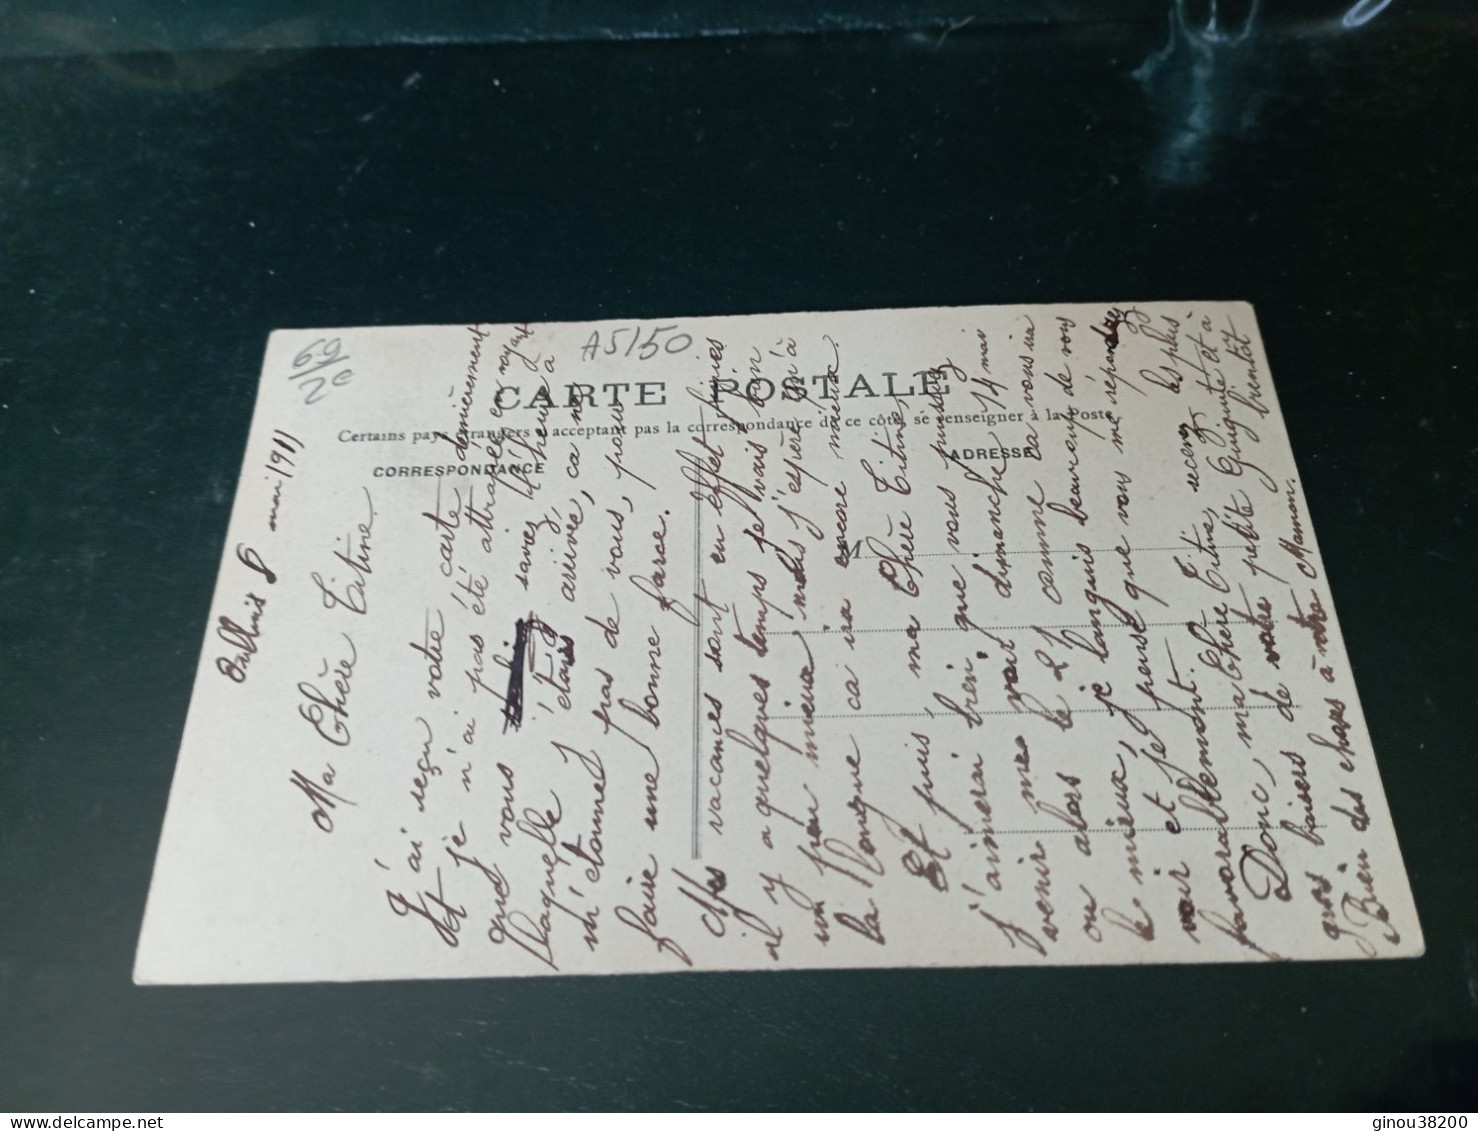 69
2e
A5/50
CARTE POSTALE
Certains pays étrangers n'acceptant pas la correspondance de ce côté, se renseigner à la Poste.
CORRESPONDANCE
ADRESSE
M
Oullins 8 mai 1911
Ma Chère Titine.
J'ai reçu votre carte dernièrement
et je n'ai pas été attrapée en voyant
que vous savez l'heure à
laquelle j'étais arrivée, ça ne
m'étonne pas de vous, pour
faire une bonne farce.
Mes vacances sont en effet finies
il y a quelques temps je vais bien
un peu mieux, mais j'espère qu'à
la longue ça ira encore mieux.
Et puis, ma Chère Titine,
j'aimerai bien, que vous puissiez
venir me voir dimanche 14 mai
ou alors le 21 comme ça vous ira
le mieux, je languis beaucoup de vous
voir et je pense que vous me répondrez
favorablement.
Donc, ma Chère Titine, recevez les plus
gros baisers de votre petite Guiguite et à bientôt
Bien des choses à votre Maman.
ginou38200